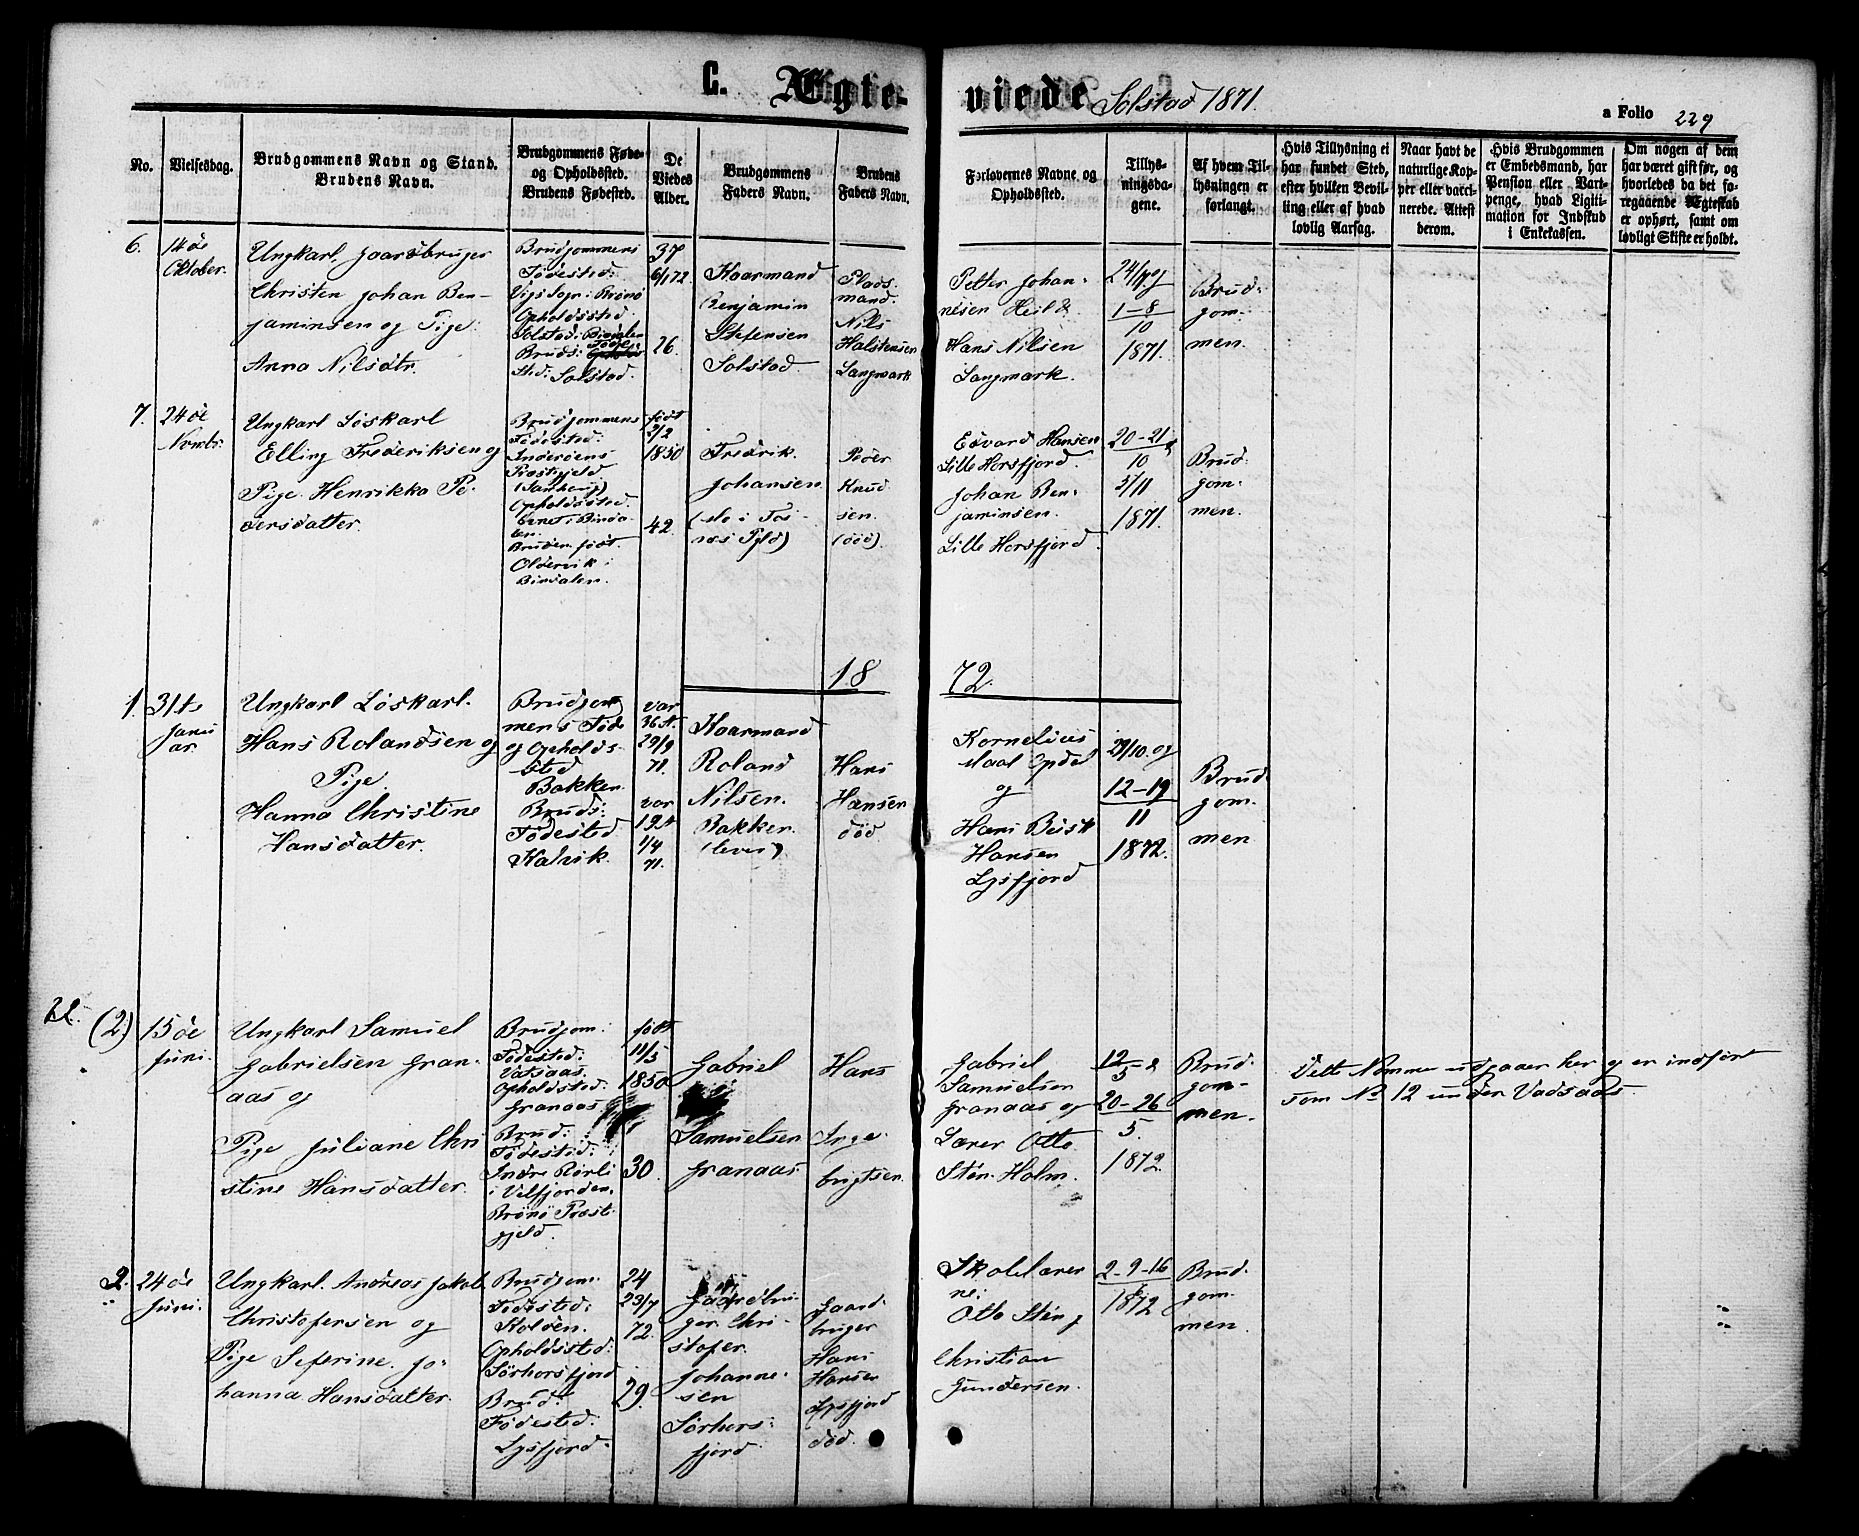 C. Ægte-
viede Solstad 1871.
a Folio 229
No.
Vielsesdag.
Brudgommens Navn og Stand.
Brudens Navn.
Brudgommens Føde-
og Opholdssted.
Brudens Fødested.
De
Viedes
Alder.
Brudgommens
Faders Navn.
Brudens
Faders Navn.
Forlovernes Navne og
Opholdssted.
Tillys-
ningsda-
gene.
Af hvem Til-
lysningen er
forlangt.
Hvis Tillysning ei
har fundet Sted,
efter hvilken Bevil-
ling eller af hvad
lovlig Aarsag.
Naar havt de
naturlige Kop-
per eller vacci-
nerede. Attest
derom.
Hvis Brudgommen
er Embedsmand, har
Pension eller Vart-
penge, hvad Ligiti-
mation for Indskud
i Enkekassen.
Om nogen af dem
har været gift før, og
hvorledes da det fo-
regaaende Ægteskab
er ophørt, samt om
lovligt Skifte er holdt.
6.
14de
Oktober.
Ungkarl, Gaardbruger
Christen Johan Ben-
jaminsen og Pige:
Anna Nilsdtr.
Brudgommens
Fødested:
Vigs Sogn: Brønø
Opholdssted
Solstad: Bindalen
Bruds: Føde-
sted: Solstad.
37
6/1 72
26.
Kaarmand
Benjamin
Stefensen
Solstad
Plads-
mand.
Nils
Halstensen
Langmark
Petter Johan-
nesen Heil &
Hans Nilsen
Langmark.
24/9 og
1-8
10
1871.
Brud-
gom-
men.
7.
24de
Novmbr:
Ungkarl Løskarl
Elling Frederiksen og
Pige Henrikka Pe-
dersdatter.
Brudgommens
Fødested:
Inderøens
Præstegjeld
Opholdssted.
Bruden født.
Oldervik i
Bindalen.
født
2/2
1850
42.
Fredrik.
Johansen
Peder
Knud-
sen.
(død).
Edvard Hansen
Lille Horsfjord.
Johan Ben-
jaminsen.
Lille Horsfjord.
20-21 &
10
5/11
1871.
Brud-
gom-
men.
18 72.
1.
31te
Janu
ar.
Ungkarl Løskarl.
Hans Rolandsen og
Pige
Hanna Christine
Hansdatter.
Brudgom
mens Føde
og Opholds-
sted
Bakken.
Bruds:
Fødested
Kalvik.
var
36 A.
29/9
71.
var
19 A
1/4
71.
Kaarmand
Roland
Nilsen.
Bakken.
(lever).
Hans
Hansen
død
Kornelius
og
Hans Beisk
Hansen
Lysfjord
29/10. og
12-19
11
1872.
Brud
gom-
men
(2.)
15de
Juni.
Ungkarl Samuel
Gabrielsen Gran-
aas og
Pige Juliane Chri
stine Hansdatter.
Brudgom:
Fødested:
Vatsaas.
Opholdssted:
Granaas
Brud:
Fødested:
Indre Rørli
i Velfjorden.
Brønø Præst
gjeld.
født
11/5
1850
30.
Gabriel
Samuelsen
Granaas
Hans
Inge-
brigtsen.
Gabriel
Samuelsen
Granaas og
Lærer Otto
Sten. Holm.
12 &
5
20-26
5.
1872.
Brud-
gom-
men.
Dette Nomme udgaaer her og er indført
som No 12 under Vadsaas.
2.
24de
Juni.
Ungkarl. Andreas Jakob
Christofersen og
Pige Seferine Jo-
hanna Hansdatter.
Brudgom:
Fødested:
Holden.
Opholdssted:
Sørhorsfjord
Brud:
Fødested:
Lysfjord.
24
23/7
72.
29.
Gaardbru-
ger Chri-
stofer
Johanne-
sen
Sørhors-
fjord
Gaard-
bruger
Hans
Hansen
Lysfjord
død.
Skolelærer
Otto Sten
Christian
Gundersen.
2-9-16
1872
Brud-
gom-
men.